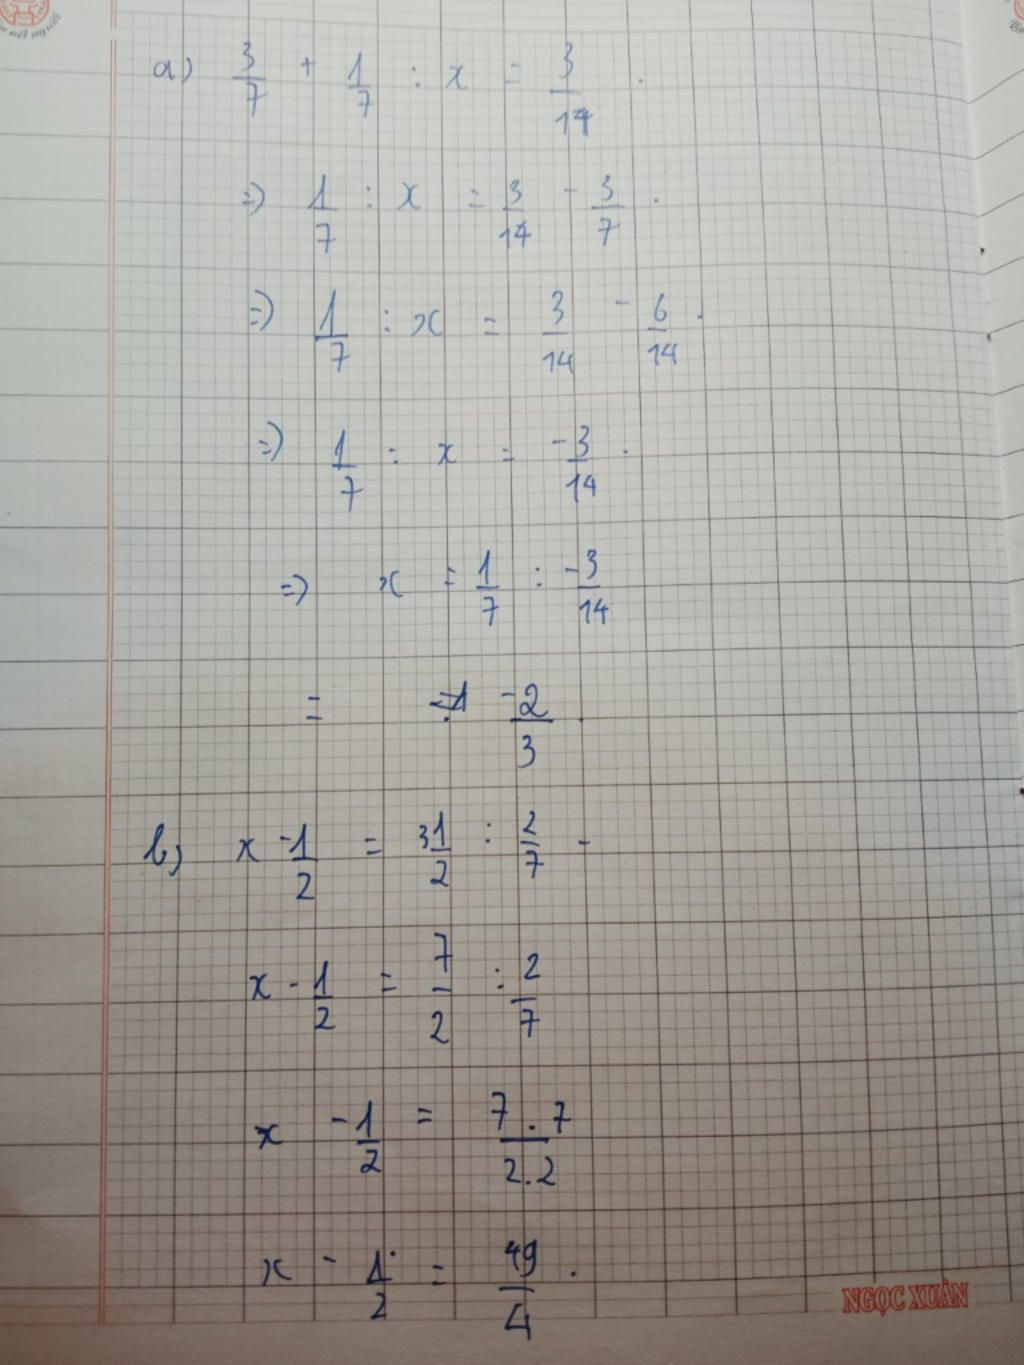 nét người
a) 3/7 + 1/7 : x = 3/14.
=> 1/7 : x = 3/14 - 3/7.
=> 1/7 : x = 3/14 - 6/14.
=> 1/7 : x = -3/14.
=> x = 1/7 : -3/14
= -2/3.
b) x - 1/2 = 3 1/2 : 2/7 -
x - 1/2 = 7/2 : 2/7
x - 1/2 = 7.7/2.2
x - 1/2 = 49/4.
NGỌC XUÂN